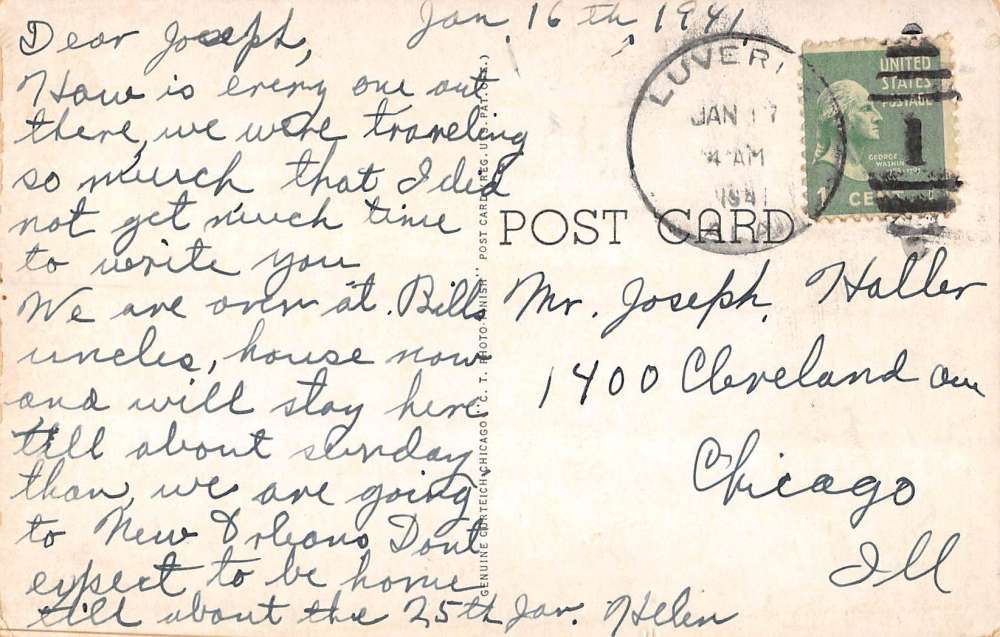 Jan, 16th, 1941,
Dear Joseph,
How is every one out
there, we were traveling
so much that I did
not get much time
to write you
We are over at. Bills
uncles, house now
and will stay here
till about sunday
than, we are going
to New Orleans Dont
expect to be home
till about the 25th Jan. Helen
GENUINE CURTEICH-CHICAGO "C. T. PHOTO-FINISH" POST CARD (REG. U.S. PAT. OFF.)
LUVER
JAN 17
4 AM
1941
ALA
UNITED
STATES
POSTAGE
GEORGE
WASHIN
1 CE
1
POST CARD
Mr. Joseph, Haller
1400 Cleveland ave
Chicago
Ill